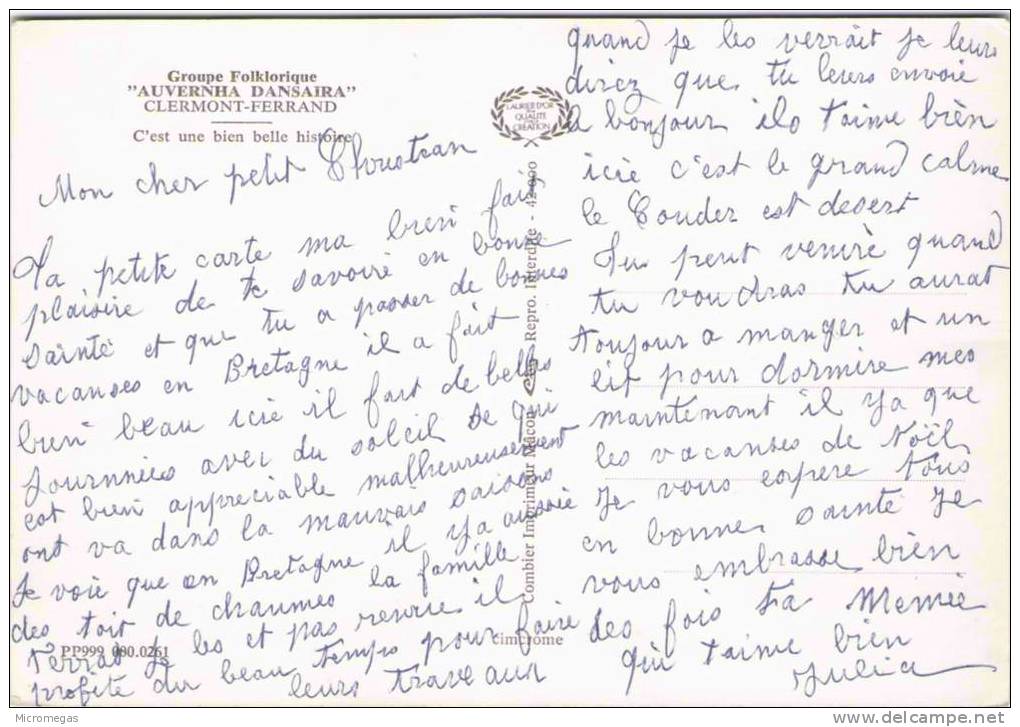 Groupe Folklorique
"AUVERNHA DANSAIRA"
CLERMONT-FERRAND
C'est une bien belle histoire
Mon cher petit Christian
Ta petite carte ma bien fait
plaisire de te savoire en bonne
sainte et que tu a passer de bonnes
vacanses en Bretagne il a fait
bien beau icie il fait de belles
journnées avec du soleil se qui
est bien appreciable malheureusement
ont va dans la mauvais saisons
Je voie que en Bretagne il ya aussie
des toit de chaumes la famille
Terrad je les et pas revue il
profite du beau temps pour faire
leurs travaux
PP999 000.0261
LAURIER D'OR
QUALITE
CREATION
Combier Imprimeur Macon
Repro. Interdite - 42.000
cimcrome
quand je les verrait je leurs
direz que tu leurs envoie
le bonjour ils t'aime bièn
icie c'est le grand calme
le Couder est desert
Tu peut venire quand
tu voudras tu aurat
toujour a manger et un
lit pour dormire mes
maintenant il ya que
les vacanses de Noël
Je vous espere tous
en bonne sainte Je
vous embrasse bièn
des fois ta Memée
qui t'aime bien
Julia
Micromegas
www.delcampe.net